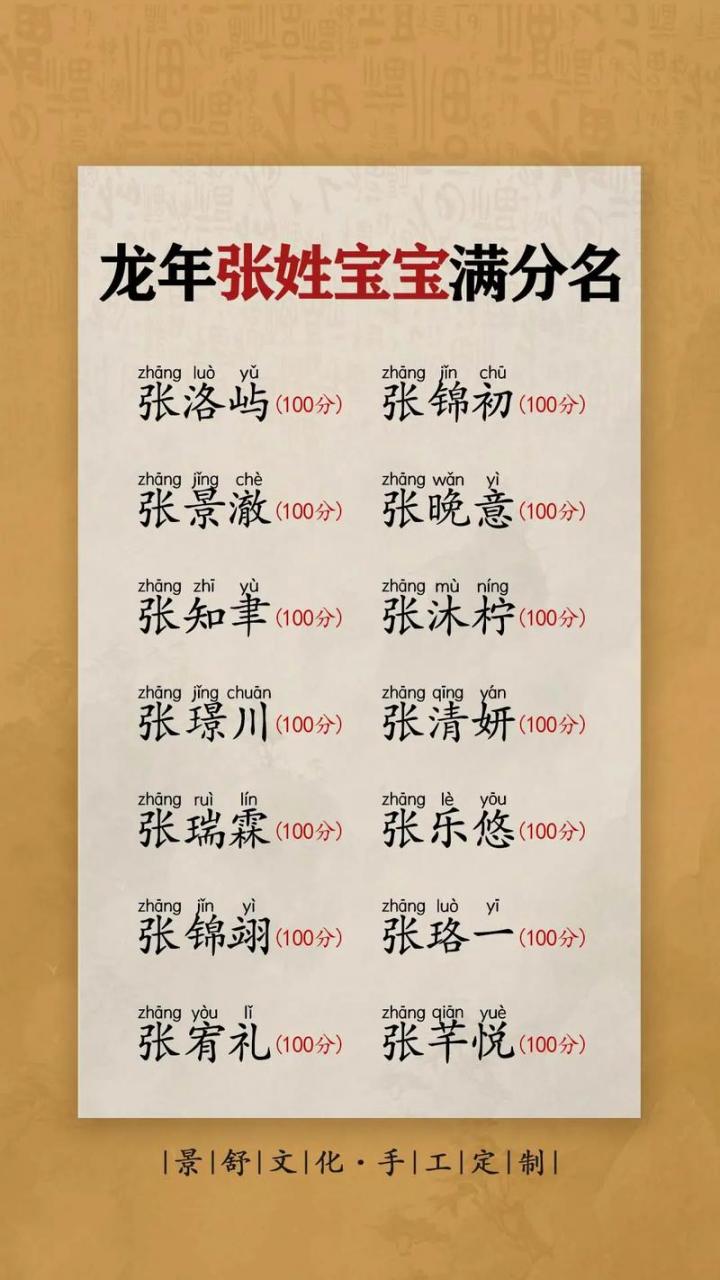 龙年张姓宝宝满分名
zhāng luò yǔ zhāng jǐn chū
张洛屿(100分) 张锦初(100分)
zhāng jǐng chè zhāng wǎn yì
张景澈(100分) 张晚意(100分)
zhāng zhī yù zhāng mù níng
张知聿(100分) 张沐柠(100分)
zhāng jǐng chuān zhāng qīng yán
张璟川(100分) 张清妍(100分)
zhāng ruì lín zhāng lè yōu
张瑞霖(100分) 张乐悠(100分)
zhāng jǐn yì zhāng luò yī
张锦翊(100分) 张珞一(100分)
zhāng yòu lǐ zhāng qiān yuè
张宥礼(100分) 张芊悦(100分)
|景|舒|文|化·手|工|定|制|